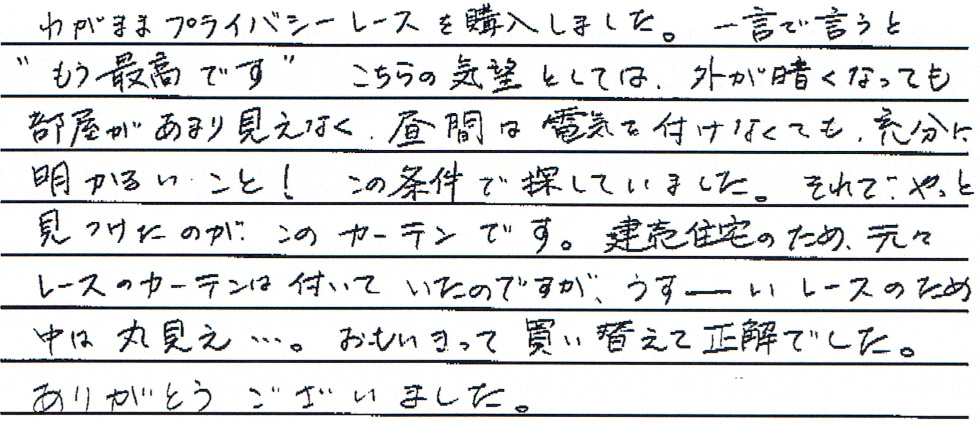 わがままプライバシーレースを購入しました。一言で言うと
"もう最高です" こちらの気望としては、外が暗くなっても
部屋があまり見えなく、昼間は電気を付けなくても、充分に
明かるいこと! この条件で探していました。それで、やっと
見つけたのが、このカーテンです。建売住宅のため、元々
レースのカーテンは付いていたのですが、うす――いレースのため
中は丸見え…。おもいきって買い替えて正解でした。
ありがとうございました。